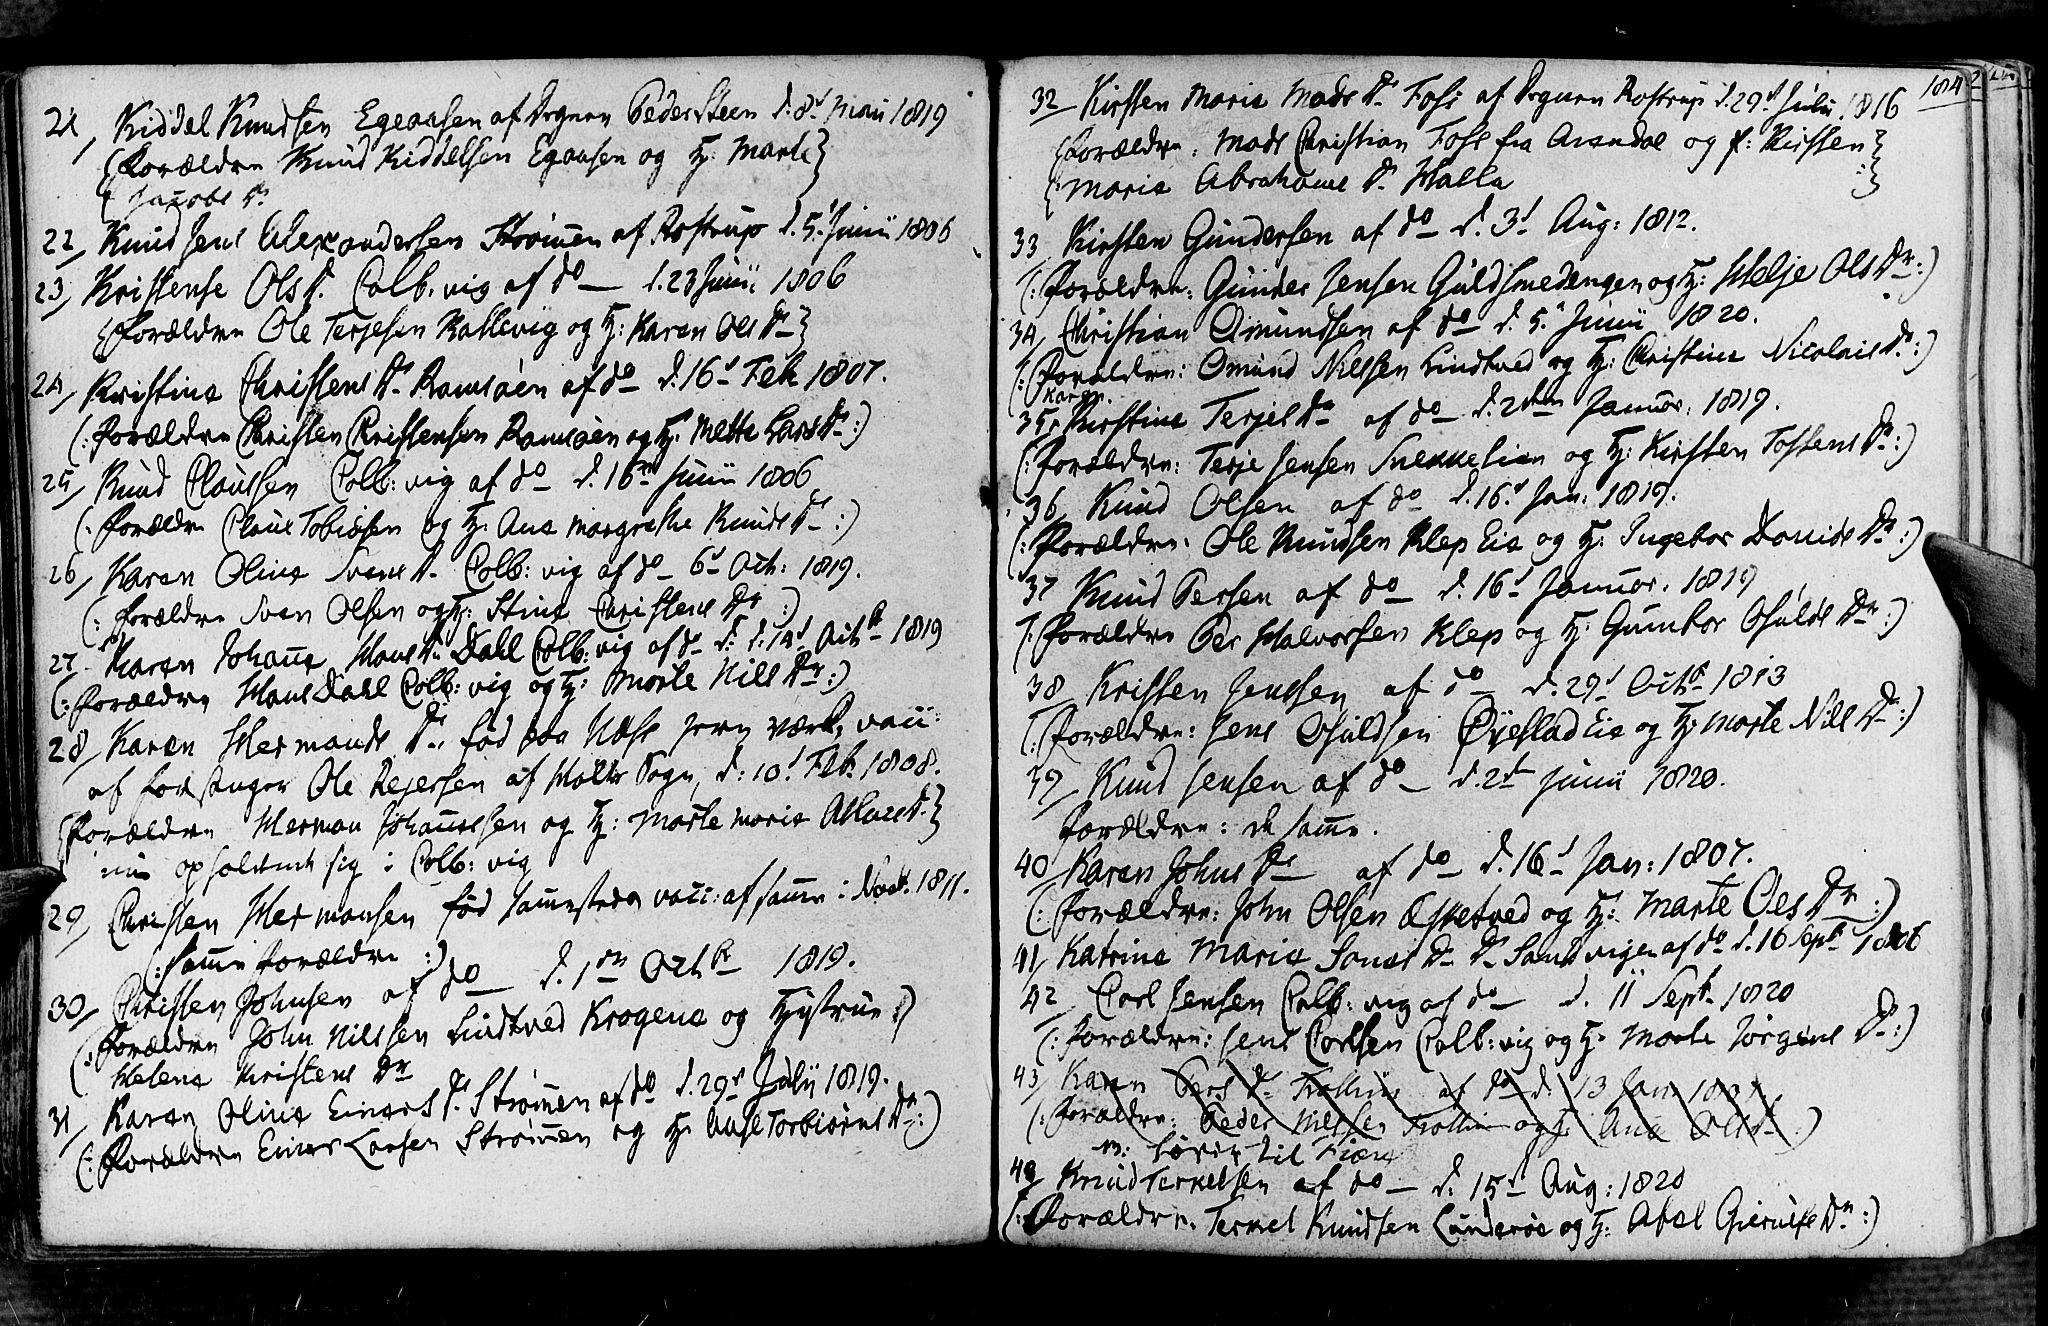 21, Kiddel Knudsen Egeaasen af Dognen Peder Steen d. 8d Maii 1819
(Forældre Knud Kiddelsen Egaasen og H: Marte
Jacobs Dr
22, Knud Jens Alexandersen Strømen af Rostrup d. 5t Junii 1806
23, Kristense Ols D. Colb: vig af do d. 23 Junii 1806
(Forældre Ole Terjesen Kallevig og H: Karen Ols Dr)
24, Kristine Christens Dr Ramsøen af do d. 16d Feb: 1807.
(: Forældre Christen Christensen Ramsøen og H: Mette Lars Dr :)
25, Knud Clausen Colb: vig af do d. 16de Junii 1806
(: Forældre Claus Tobiasen og H: Ana Margrethe Knuds Dr :)
26, Karen Oline Svens D. Colb: vig af do 6d Oct: 1819.
(: Forældre Sven Olsen og H: Stine Christens Dr :)
27 Karen Johane Hans D. Dahl Colb: vig af do d. 14d Octbr 1819
(: Forældre Hans Dahl Colb: vig og H: Marte Nils Dr :)
28, Karen Hermands Dr, fød paa Næss Jern Værk, vacc:
af Forstanger Ole Rejersen af Holts Sogn, d: 10d Feb. 1808.
(Forældre Herman Johannesen og H: Marte Marie Atlaces D.)
nu opholdende sig i Colb: vig
29, Christen Hermansen fød sammesteds vacc: af samme i Novbr. 1811.
(: samme Forældre :)
30, Christen Johnsen af do d. 1ste Octbr 1819.
(: Forældre John Nilssen Lindtved Kragene og Hustrue :)
Helene Kristens Dr
31, Karen Oline Einers D. Strømen af do d. 29d Julii 1819.
(: Forældre Einer Larsen Strømen og H: Aase Torbiørns Dr :)
184
32 Kirsten Marie Mads Dr Foss af Dognen Rostrup d. 29d Julii 1816
(Forældre: Mads Christian Foss fra Arendal og f: Kirsten
Marie Abrahams Dr Halla
33, Kirsten Gundersen af do d. 3d Aug: 1812.
(: Forældre: Gunder Jensen Guldsmedengen og H: Helje Ols Dr :)
34, Christian Omundsen af do d. 5. Junii 1820.
(: Forældre: Omund Nielsen Lindtved og H: Christine Nicolais Dr :)
Karen
35, Kirstine Terjes Dr af do d. 2den Januar: 1819.
(: Forældre: Terje Jensen Snekkelien og H: Kirsten Tostens Dr :)
36, Knud Olsen af do d. 16d Jan: 1819.
(: Forældre: Ole Knudsen Klep Eie og H: Ingebor Davids Dr :)
37 Knud Persen af do d. 16d Januar. 1819
(: Forældre Per Halvorsen Klep og H: Gunbor Osulds Dr :)
38, Kristen Jenssen af do d. 29d Octbr 1813
(: Forældre: Jens Osuldsen Øyestad Eie og H: Marte Nils Dr :)
39, Knud Jensen af do d. 2de Junii 1820.
Forældre: de samme.
40, Karen Johns Dr af do d. 16d Jan: 1807.
(: Forældre: John Olsen Espetved og H: Marte Oles Dr :)
41, Katrine Marie Sones Dr Sandvigen af do d. 16 Septbr 1806
42, Carl Jensen Colb: vig af do d. 11 Septbr 1820
(: Forældre: Jens Carlsen Colb: vig og H: Marte Jørgens Dr :)
43, Karen Pers Dr Trollün af do d. 13 Jan:
(: Forældre: Peder Nielsen Trollün og H: Ane Ols Dr :)
m: hører til Fiære
43, Knud Terkelsen af do d. 15d Aug: 1820
(: Forældre. Terkel Knudsen Lunderøe og H: Abel Gierulfs Dr :)